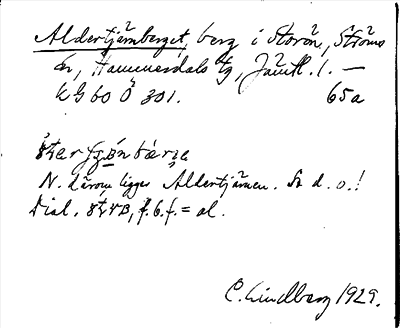 Aldertjärnberget, berg i Storön, Ströms
sn, Hammerdals tg, Jämtl. l. —
KG 60 Ö 301. 65a
N. därom ligger Aldertjärnen. Se d. o.!
Dial. f. b. f. = al.
C. Lindberg 1929.